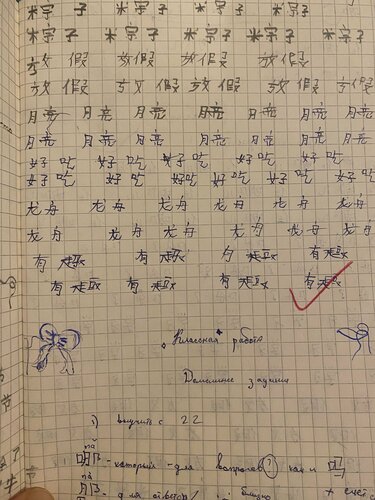 粽子 粽子 粽子 粽子
粽子 粽子 粽子 粽子 粽子
放假 放假 放假 放假
放假 放假 放假 放假 放假
月亮 月亮 月亮 月亮 月亮 月亮
月亮 月亮 月亮 月亮 月亮 月亮
好吃 好吃 好吃 好吃 好吃
好吃 好吃 好吃 好吃 好吃 好吃
龙舟 龙舟 龙舟 龙舟 龙舟 龙舟
龙舟 龙舟 龙舟 龙舟 龙舟 龙舟
有趣 有趣 有趣 有趣
有趣 有趣 有趣 有趣
Классная работа
Домашнее задание
1) выучить с 22
nǎ
哪 - который - для вопросов (?) как и 吗
nà
那 - для